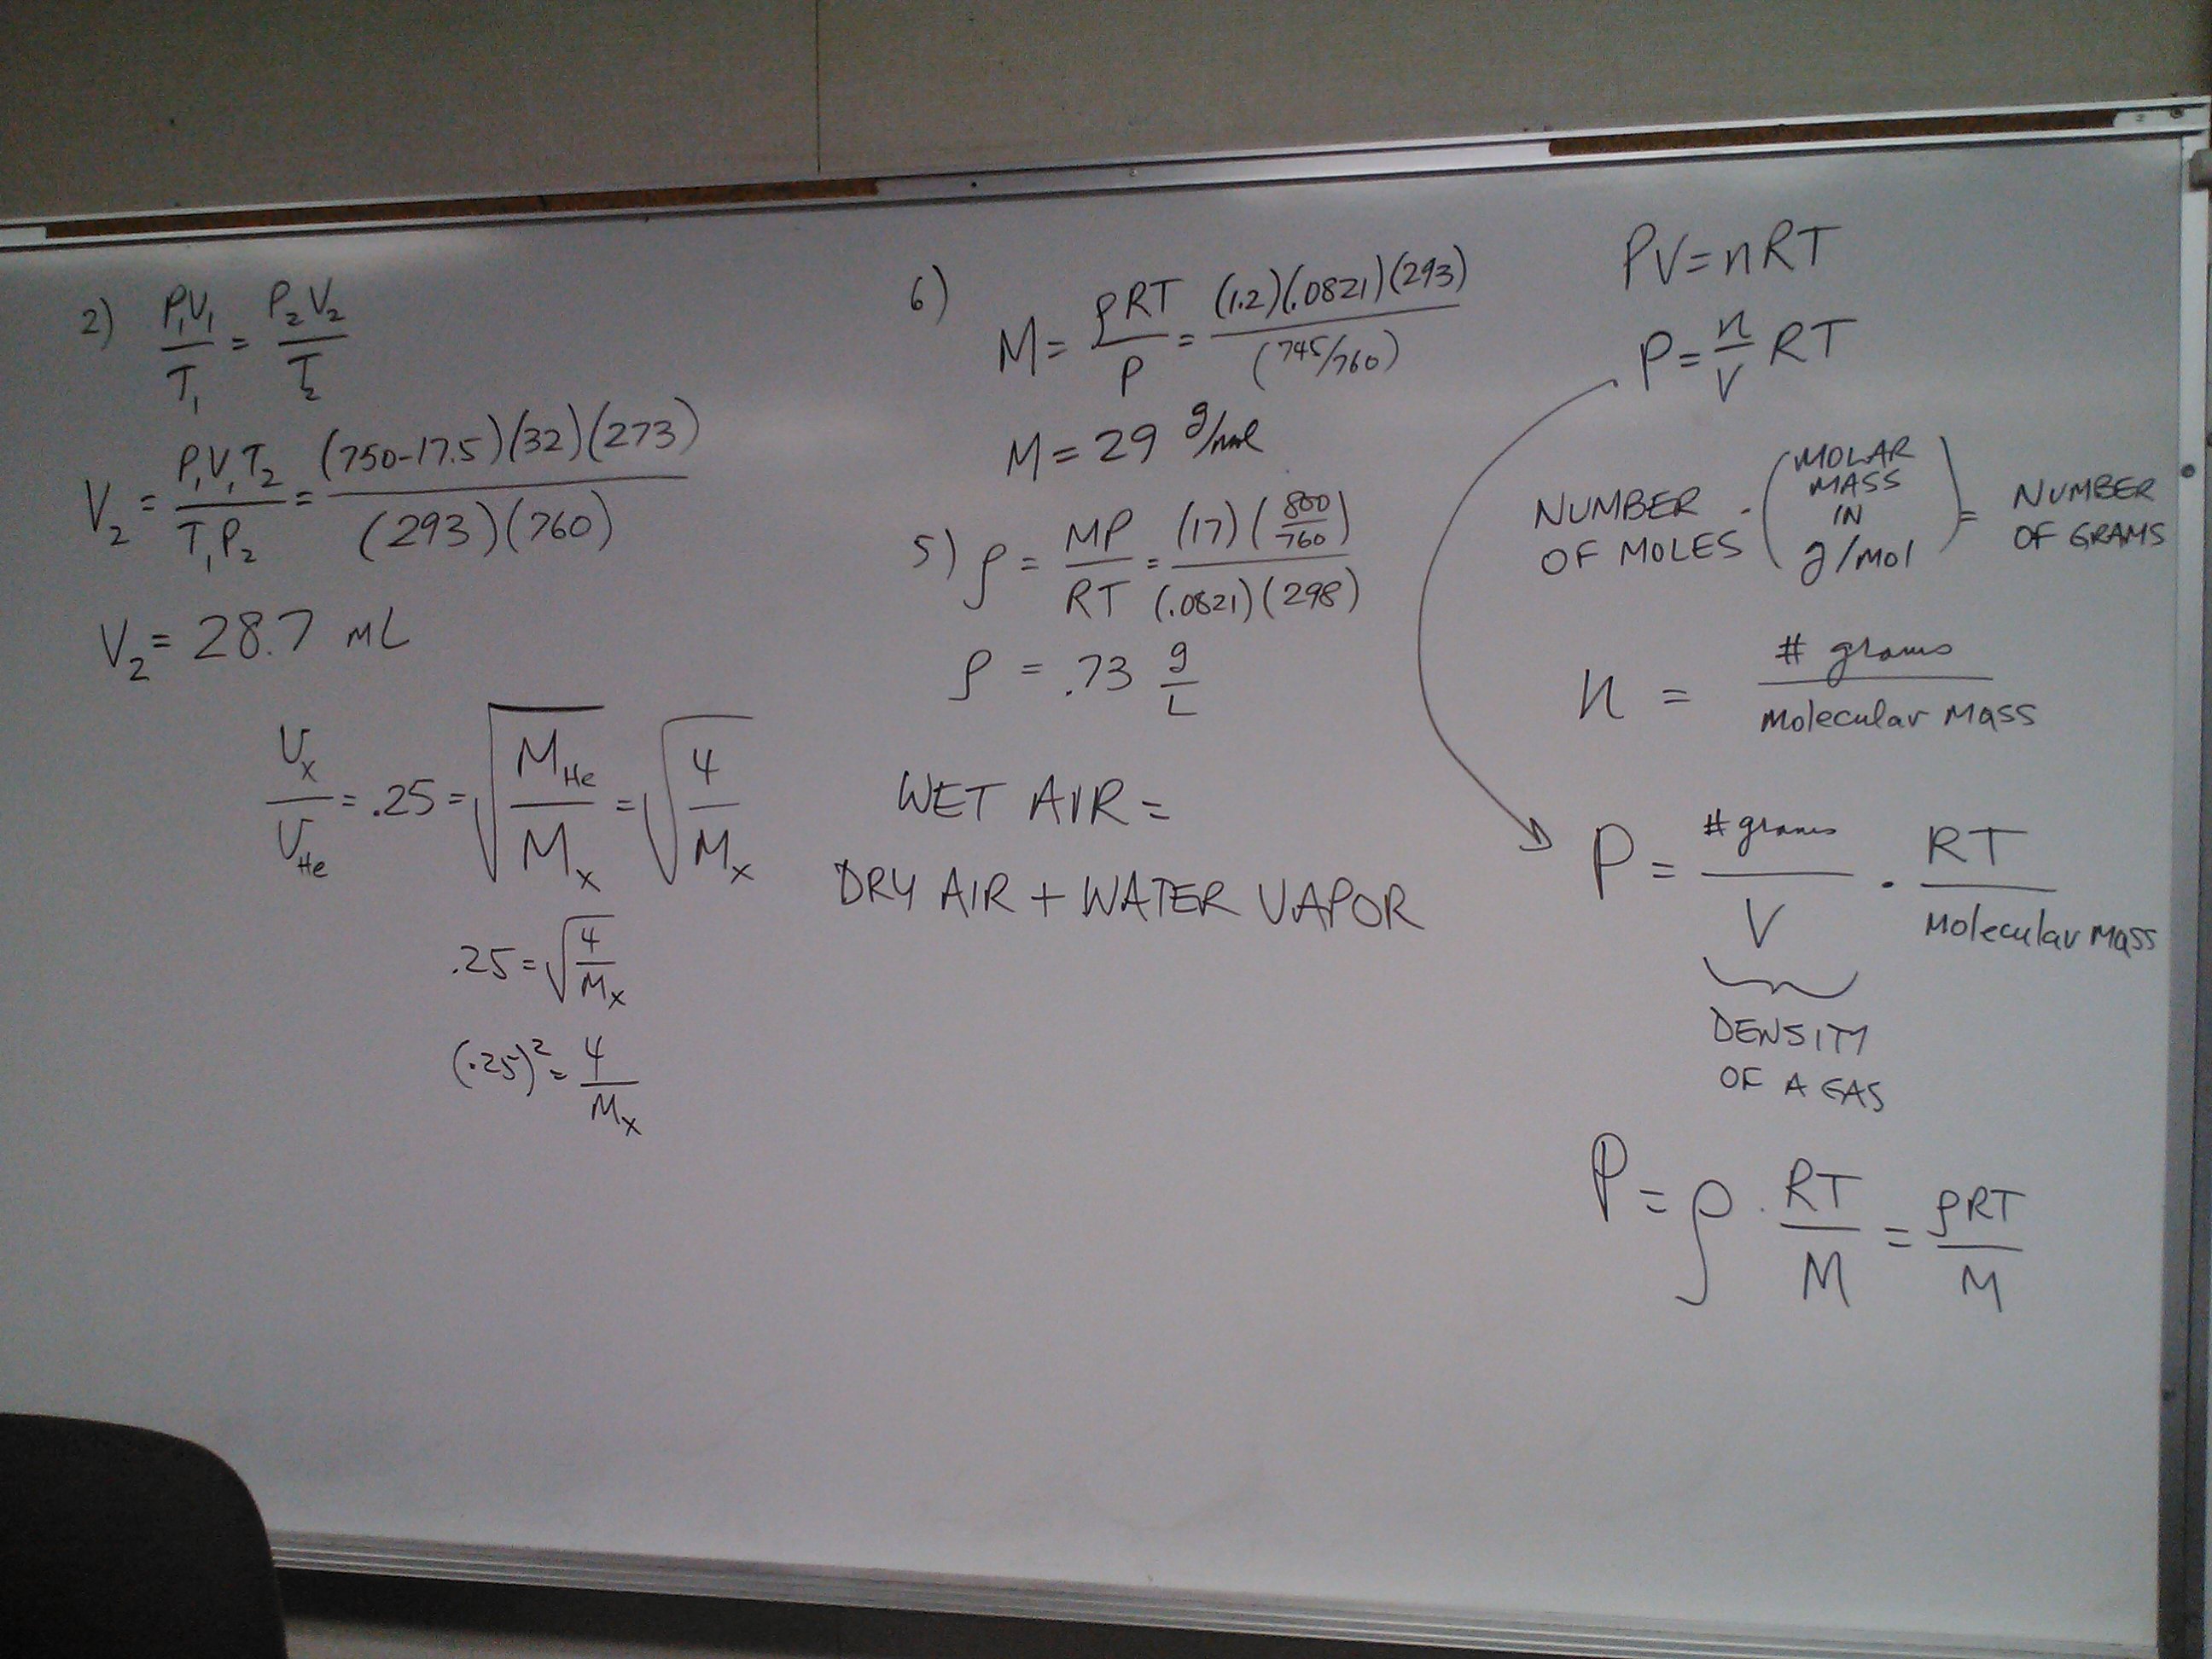 2) P₁V₁/T₁ = P₂V₂/T₂
V₂ = P₁V₁T₂/T₁P₂ = (750-17.5)(32)(273)/(293)(760)
V₂ = 28.7 mL
υₓ/υ_He = .25 = √(M_He/Mₓ) = √(4/Mₓ)
.25 = √(4/Mₓ)
(.25)² = 4/Mₓ
6) M = ρRT/P = (1.2)(.0821)(293)/(745/760)
M = 29 g/mol
5) ρ = MP/RT = (17)(800/760)/(.0821)(298)
ρ = .73 g/L
WET AIR =
DRY AIR + WATER VAPOR
PV = nRT
P = n/V RT
NUMBER OF MOLES · (MOLAR MASS IN g/mol) = NUMBER OF GRAMS
n = # grams/molecular mass
P = # grams/V · RT/molecular mass
DENSITY
OF A GAS
P = ρ · RT/M = ρRT/M